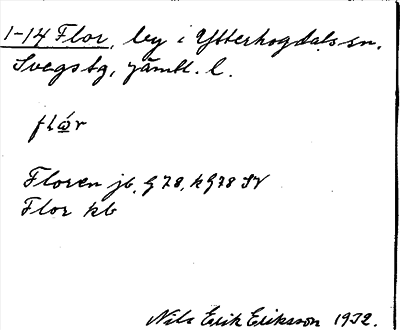 1-14 Flor, by i Ytterhogdals sn.
Svegs tg, Jämtl. l.
flώr
Floren jb, G 78, kG 78 SV
Flor kb
Nils Erik Eriksson 1932.